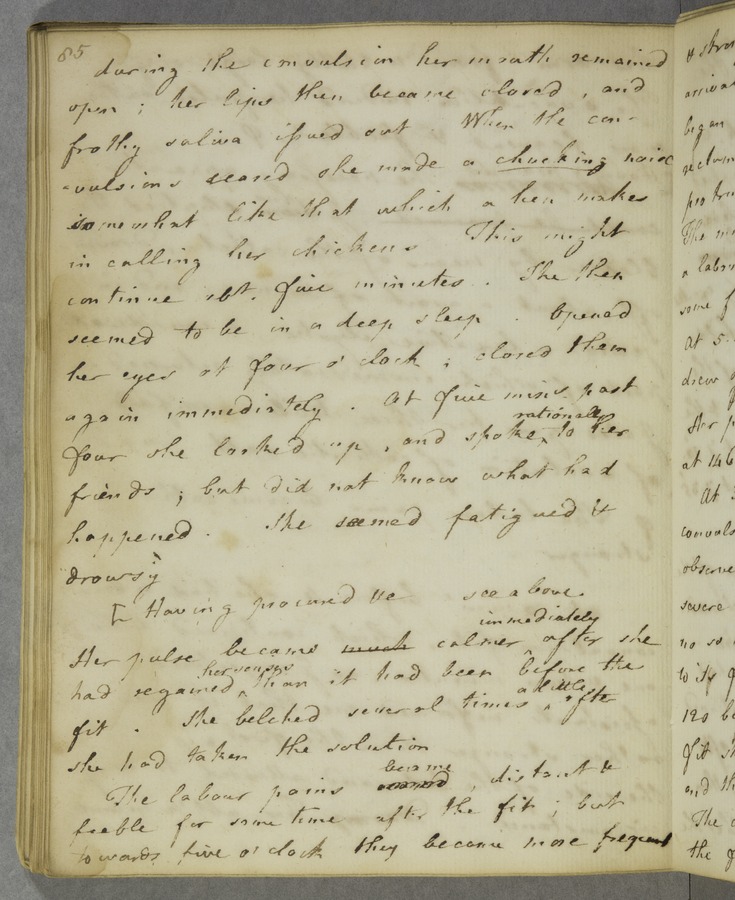 85
during the convulsion her mouth remained
open ; her lips then became closed , and
frothy saliva issued out . When the con-
-vulsions ceased she made a chucking noise
somewhat like that which a hen makes
in calling her chickens This might
continue abt. five minutes . She then
seemed to be in a deep sleep . Opened
her eyes at four o'clock ; closed them
again immediately . At five mins. past
rationally
four she looked up , and spoke ^ to her
friends ; but did not know what had
happened . She seemed fatigued &
drowsy
[ Having procured &c see above.
immediately
Her pulse became much calmer ^ after she
her senses
had regained ^ than it had been before the
a little
fit . She belched several times ^ after
she had taken the solution
became
The labour pains , distant &
feeble for some time after the fit ; but
towards five o'clock they became more frequent
& stron
arrival
began
The
a labo
some f
At 5.
drew
Her p
at 146
At
convuls
observe
severe
no so
to its
120 be
fit sh
and th
The
the